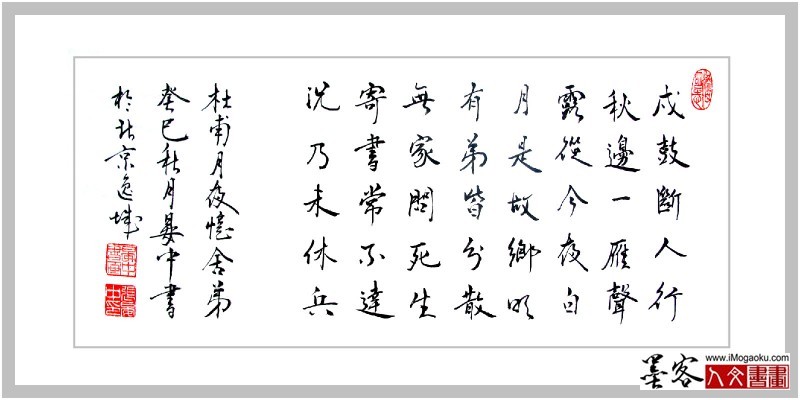 戍鼓斷人行
秋邊一雁聲
露從今夜白
月是故鄉明
有弟皆分散
無家問死生
寄書常不達
況乃未休兵
杜甫月夜憶舍弟
癸巳秋月中書
於北京逸城
墨客
www.iMogaoku.com
人文書畫